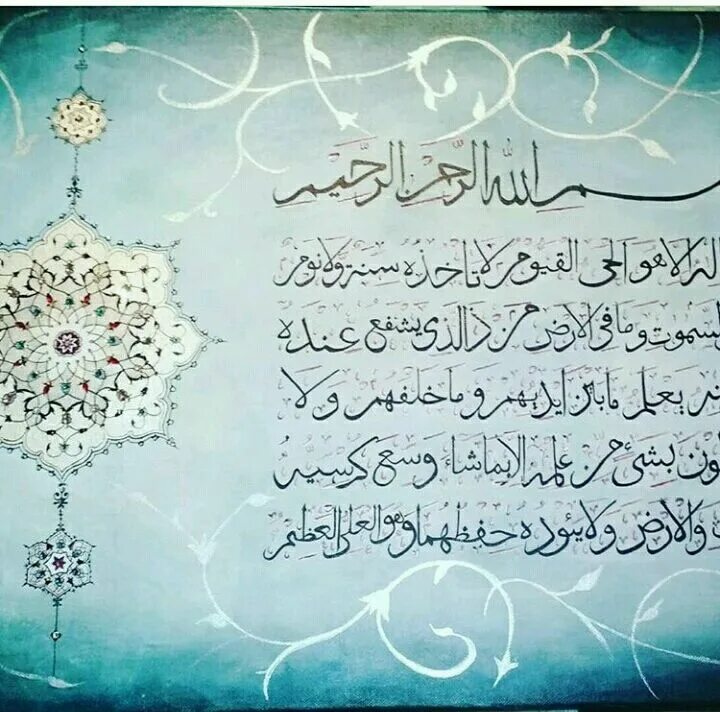 سم الله الرحمن الرحيم
له الا هو الحي القيوم لا تاخذه سنة ولا نوم
لسموت وما في الارض من ذا الذي يشفع عنده
نه يعلم ما بين ايديهم وما خلفهم ولا
ون بشئ من علمه الا بما شاء وسع كرسيه
والارض ولا يئوده حفظهما وهو العلي العظيم